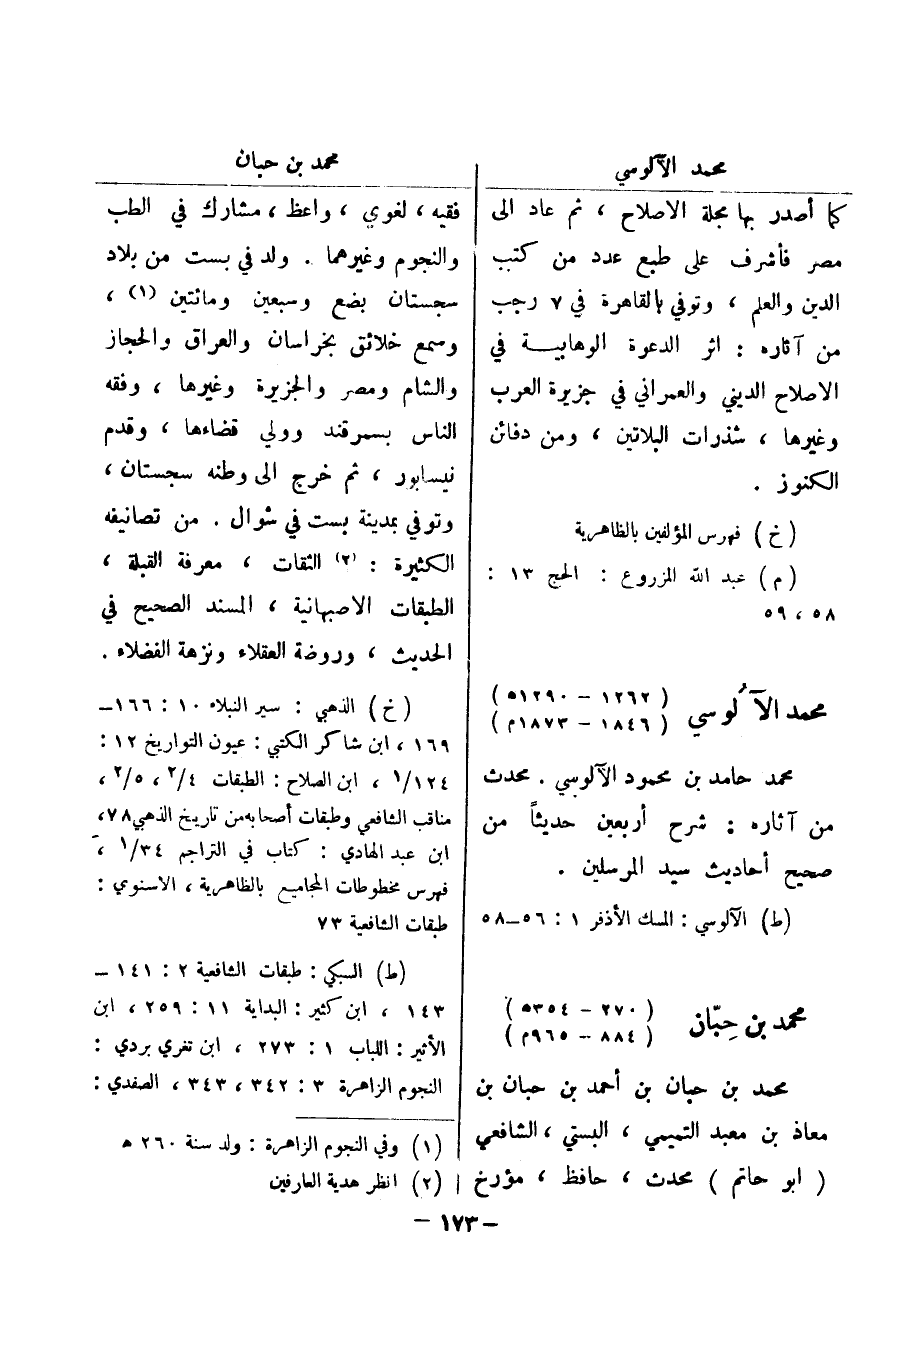 محمد الآلوسي
كما أصدر بها مجلة الاصلاح ، ثم عاد الى
مصر فأشرف على طبع عدد من كتب
الدين والعلم ، وتوفي بالقاهرة في ٧ رجب
من آثاره : اثر الدعوة الوهابية في
الاصلاح الديني والعمراني في جزيرة العرب
وغيرها ، شذرات البلاتين ، ومن دفائن
الكنوز .
(خ) فهرس المؤلفين بالظاهرية
(م) عبد الله المزروع : الحج ١٣ :
٥٨ ، ٥٩
محمد الآلوسي ( ١٢٦٢ – ١٢٩٠ه )
( ١٨٤٦ – ١٨٧٣م )
محمد حامد بن محمود الآلوسي . محدث
من آثاره : شرح أربعين حديثاً من
صحيح أحاديث سيد المرسلين .
(ط) الآلوسي : المسك الأذفر ١ : ٥٦–٥٨
محمد بن حِبّان ( ٢٧٠ – ٣٥٤ه )
( ٨٨٤ – ٩٦٥م )
محمد بن حبان بن أحمد بن حبان بن
معاذ بن معبد التميمي ، البستي ، الشافعي
( ابو حاتم ) محدث ، حافظ ، مؤرخ
محمد بن حبان
فقيه ، لغوي ، واعظ ، مشارك في الطب
والنجوم وغيرهما . ولد في بست من بلاد
سجستان بضع وسبعين ومائتين (١) ،
وسمع خلائق بخراسان والعراق والحجاز
والشام ومصر والجزيرة وغيرها ، وفقه
الناس بسمرقند وولي قضاءها ، وقدم
نيسابور ، ثم خرج الى وطنه سجستان ،
وتوفي بمدينة بست في شوال . من تصانيفه
الكثيرة : (٢) الثقات ، معرفة القبلة ،
الطبقات الاصبهانية ، المسند الصحيح في
الحديث ، وروضة العقلاء ونزهة الفضلاء .
(خ) الذهبي : سير النبلاء ١٠ : ١٦٦–
١٦٩ ، ابن شاكر الكتبي : عيون التواريخ ١٢ :
١٢٤/١ ، ابن الصلاح : الطبقات ٤/٢ ، ٥/٢ ،
مناقب الشافعي وطبقات أصحابه من تاريخ الذهبي ٧٨ ،
ابن عبد الهادي : كتاب في التراجم ٣٤/١ ،
فهرس مخطوطات المجاميع بالظاهرية ، الاسنوي :
طبقات الشافعية ٧٣
(ط) السبكي : طبقات الشافعية ٢ : ١٤١ –
١٤٣ ، ابن كثير : البداية ١١ : ٢٥٩ ، ابن
الأثير : اللباب ١ : ٢٧٣ ، ابن تغري بردي :
النجوم الزاهرة ٣ : ٣٤٢ ، ٣٤٣ ، الصفدي :
(١) وفي النجوم الزاهرة : ولد سنة ٢٦٠ ه
(٢) انظر هدية العارفين
– ١٧٣ –